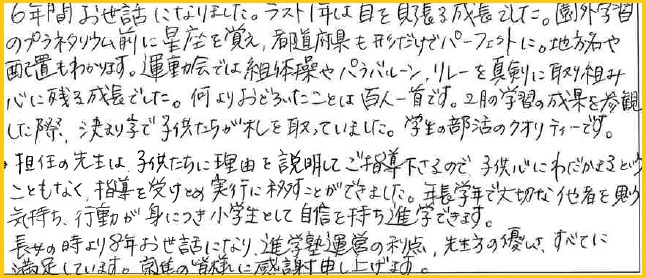 6年間お世話になりました。ラスト1年は目を見張る成長でした。園外学習
のプラネタリウム前に星座を覚え、都道府県も形だけでパーフェクトに。地方名や
配置もわかります。運動会では組体操やパラバルーン、リレーを真剣に取り組み
心に残る成長でした。何よりおどろいたことは百人一首です。2月の学習の成果を参観
した際、決まり字で子供たちが札を取っていました。学生の部活のクオリティーです。
・担任の先生は、子供たちに理由を説明してご指導下さるので子供心にわだかまるという
こともなく、指導を受けとめ実行に移すことができました。年長学年で大切な他者を思う
気持ち、行動が身につき小学生として自信を持ち進学できます。
長女の時より8年お世話になり、進学塾運営の利点、先生方の優しさ、すべてに
満足しています。 皆様に感謝申し上げます。